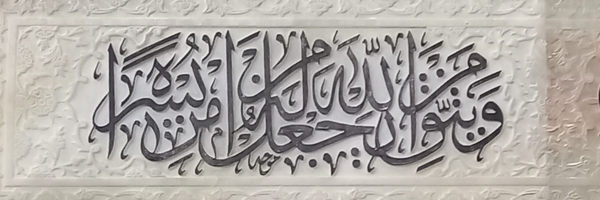 ومن يتق الله يجعل له من امره يسرا